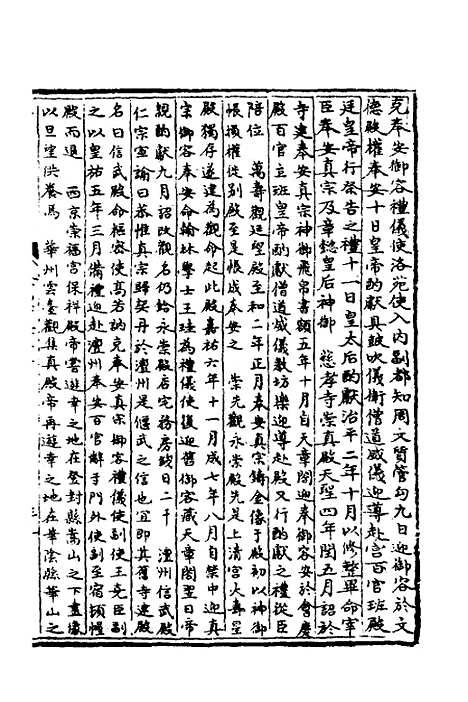 充奉安御容禮儀使洛苑使入內副都知周文質管勾九日迎御容於文
德殿權奉安十日皇帝酌獻具鼓吹儀衛僧道威儀迎導赴宮百官班殿
廷皇帝行祭告之禮十一日皇太后酌獻治平二年十月以修整畢命宰
臣奉安真宗及章懿皇后神御　慈孝寺崇真殿天聖四年閏五月詔於
寺建奉安真宗神御飛帛書額五年十月自天章閣迎奉御容安於會慶
殿百官立班皇帝酌獻僧道威儀教坊樂迎導赴殿又行酌獻之禮從臣
陪位　萬壽觀延聖殿至和二年正月奉安真宗鑄金像于殿初以神御
帳損權徙別殿至是帳成奉安之　崇先觀永崇殿先是上清宮火壽星
殿獨存遂建為觀命起此殿嘉祐六年十一月成七年八月自禁中迎真
宗御容奉安命翰林學士王珪為禮儀使復迎舊御容藏天章閣翌日帝
親酌獻九月詔改觀名仍給永崇殿店宅務房錢日二千　澶州信武殿
仁宗宣諭曰恭惟真宗歸契丹於澶州是偃武之信也宜即其舊寺建殿
名曰信武殿命樞密使高若訥充奉安真宗御容禮儀使副使王堯臣副
之以皇祐五年三月備禮迎赴澶州奉安百官辭于門外使副至宿頓幄
殿而退　西京崇福宮保祥殿帝嘗遊幸之地在登封縣嵩山之下畫像
以旦望洪養焉　華州雲臺觀集真殿帝再遊幸之地在華陰縣華山之